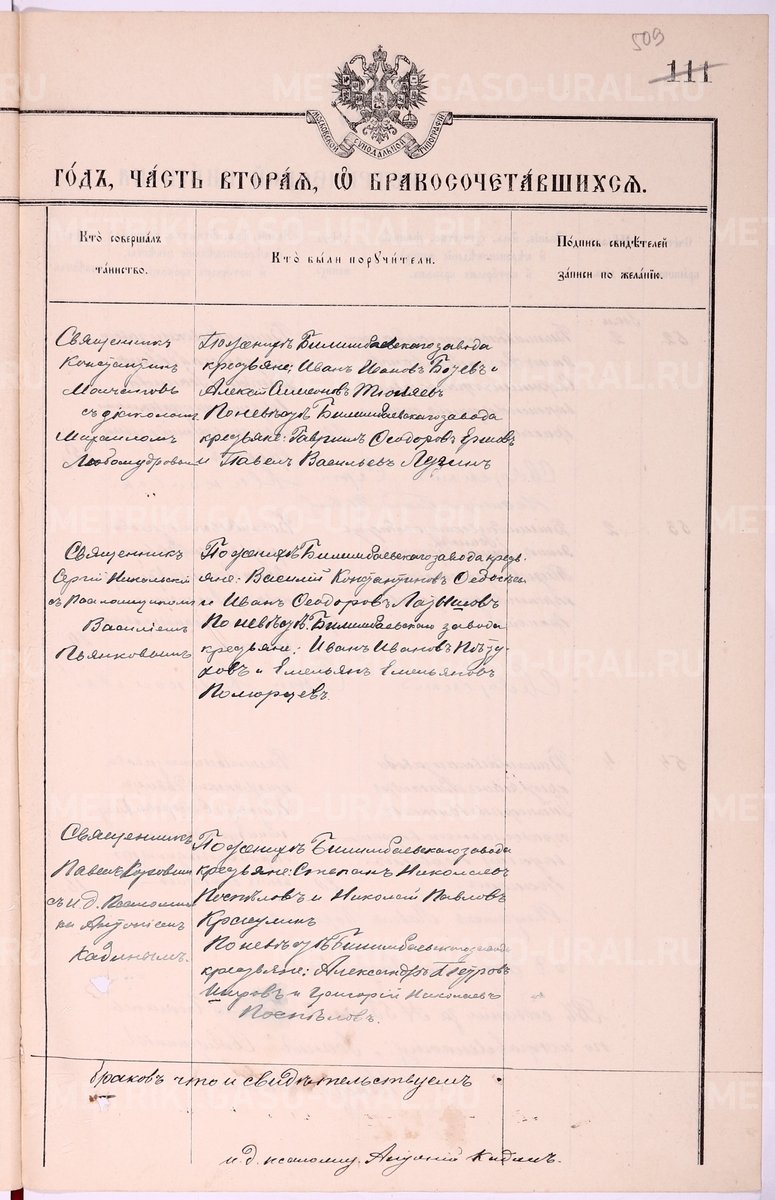 509
111
МОСКОВСКОЙ СѴНОДАЛЬНОЙ ТИПОГРАФІИ
ГО́ДЪ, ЧА́СТЬ ВТОРА́Я, Ѽ БРАКОСОЧЕТА́ВШИХСЯ.
Кто̀ соверша́лъ
та́инство.
Кто̀ бы́ли поручи́тели.
По́дпись свидѣ́телей
за́писи по жела́нїю.
Священникъ
Константинъ
съ діакономъ
Михаиломъ
Любомудровымъ
По женихѣ Билимбаевскаго завода
крестьяне: Иванъ Ивановъ и
Алексѣй Симеоновъ
По невѣстѣ Билимбаевскаго завода
крестьяне: Гавриилъ Ѳеодоровъ Ершовъ
и Павелъ Васильевъ Лузинъ
Священникъ
Сергій Никольскій
съ Псаломщикомъ
Василіемъ
Пьянковымъ
По женихѣ Билимбаевскаго завода кресть-
яне: Василій Константиновъ
и Иванъ Ѳеодоровъ Латышовъ
По невѣстѣ Билимбаевскаго завода
крестьяне: Иванъ Ивановъ Пѣту-
ховъ и Емельянъ Емельяновъ
Поморцевъ.
Священникъ
Павелъ
съ и.д. Псаломщи-
ка Антоніемъ
Кадинымъ.
По женихѣ Билимбаевскаго завода
крестьяне: Степанъ Николаевъ
Поспѣловъ и Николай Павловъ
По невѣстѣ Билимбаевскаго завода
крестьяне: Александръ Петровъ
Шировъ и Григорій Николаевъ
Поспѣловъ.
браковъ что и свидѣтельствуемъ
и.д. псаломщ. Антоній Кадинъ.
METRIKI.GASO-URAL.RU